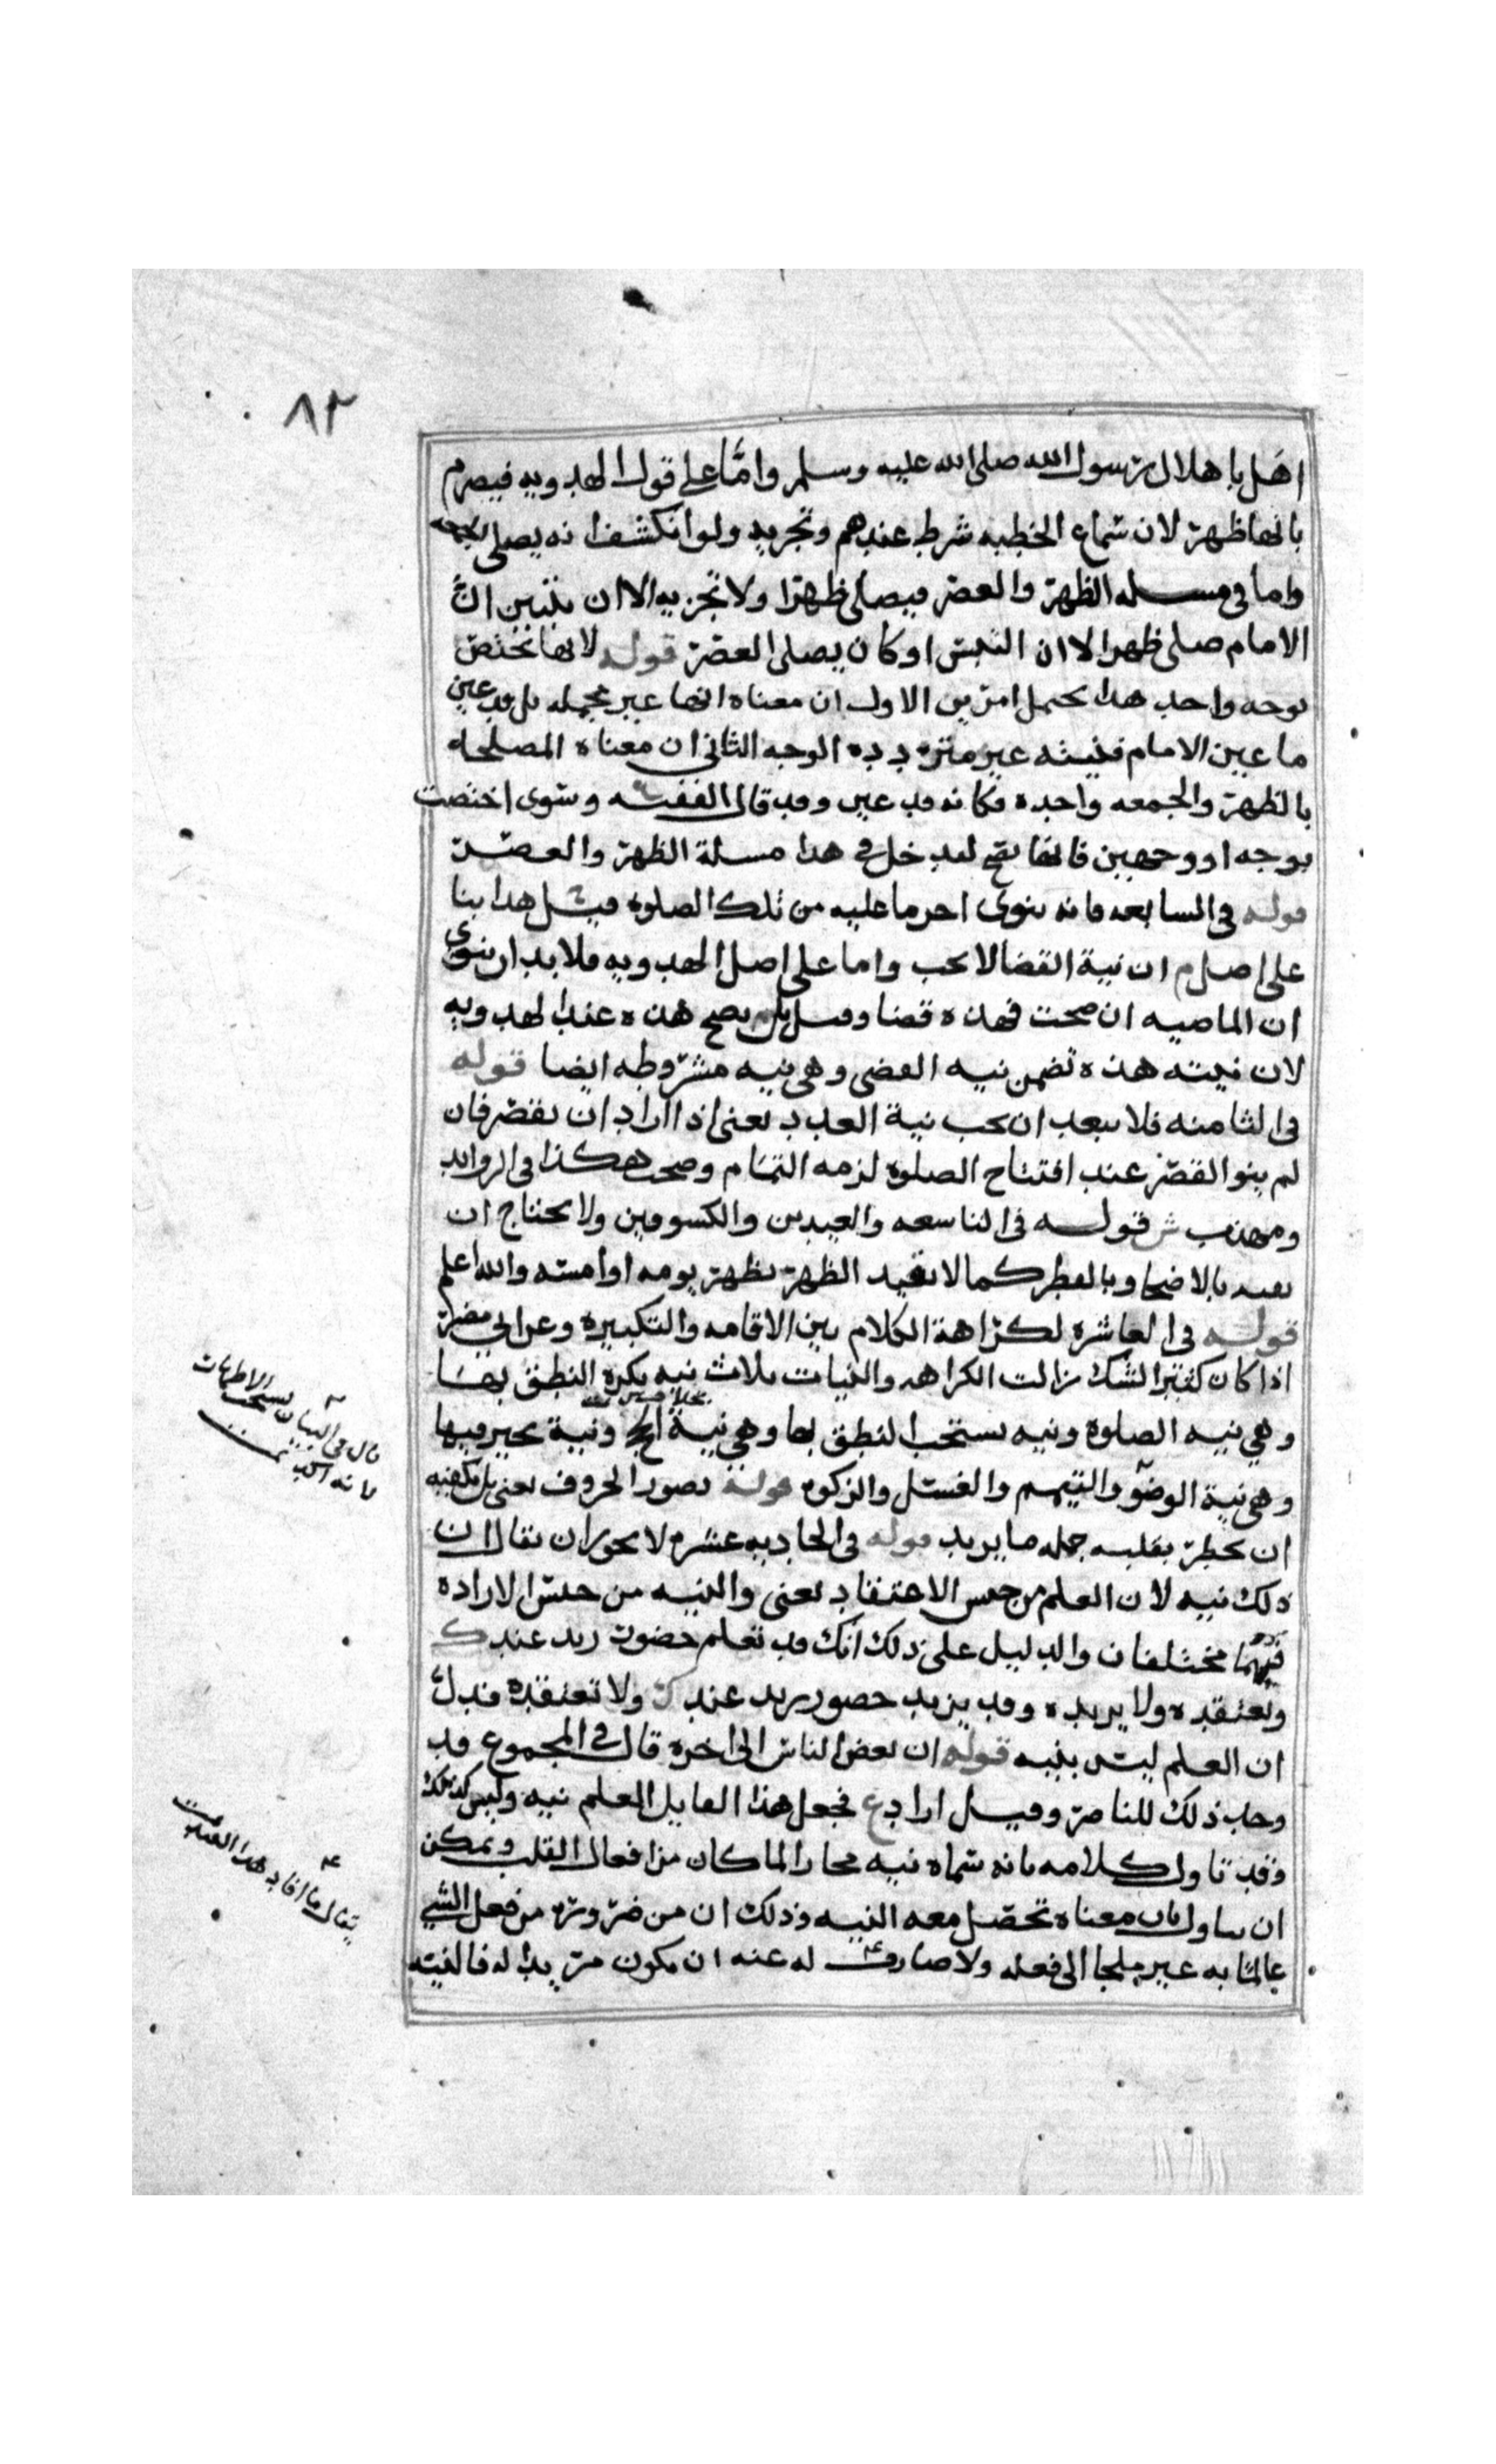 ٨٢
اهل باهلال رسول الله صلى الله عليه وسلم واما على قول الهدويه فيصرم
بانها ظهر لان سماع الخطبه شرط عندهم وتجزيه ولو انكشف انه يصلي الجمعه
واما في مسله الظهر والعصر فيصلي ظهرا ولا تجزيه الا ان يتبين ان
الامام صلى ظهرا لا ان التبس او كان يصلي العصر قوله لانها تختص
بوجه واحد هذا يحتمل امرين الاول ان معناه انها غير مجمله بل قد عين
ما عين الامام فنيته غير متردده الوجه الثاني ان معناه المصلحه
بالظهر والجمعه واحده فكانه قد عين وقد قال الفقيه وسوى اختصت
بوجه او وجهين فانها تصح ليدخل في هذا مسلة الظهر والعصر
قوله في السابعه فانه ينوي اخر ما عليه من تلك الصلوة قيل هذا بنا
على اصل م ان نية القضا لا تجب واما على اصل الهدويه فلا بد ان ينوي
ان الماضيه ان صحت فهذه قضا وقيل بل يصح هذه عند الهدويه
لان نيته هذه تضمن نيه القضى وهي نيه مشروطه ايضا قوله
في الثامنه فلا يبعد ان تجب نية العدد يعني اذا اراد ان يقصر فان
لم ينو القصر عند افتتاح الصلوة لزمه التمام وصحت هكذا في الزوايد
ومهذب ش قوله في التاسعه والعيدين والكسوفين ولا يحتاج ان
يقيد بالاضحا وبالفطر كما لا يقيد الظهر بظهر يومه او امسه والله اعلم
قوله في العاشره لكراهة الكلام بين الاقامه والتكبيره وعن ابي مضر
اذا كان كثير الشك زالت الكراهه والنيات ثلاث نيه يكره النطق بها
وهي نيه الصلوة ونيه يستحب النطق بها وهي نية الحج ونية يخير فيها
وهي نية الوضو والتيمم والغسل والزكوه قوله تصور الحروف يعني بل يكفيه
ان يخطر بقلبه جمله ما يريد قوله في الحاديه عشره لا يجوز ان يقال ان
ذلك نيه لان العلم من جنس الاعتقاد يعني والنيه من جنس الارادة
فهما مختلفان والدليل على ذلك انك قد تعلم حضور زيد عندك
وتعتقده ولا يريده وقد يريد حضور زيد عندك ولا تعتقده فدل
ان العلم ليس بنيه قوله ان بعض الناس الى اخره قال في المجموع قد
وجد ذلك للناصر وقيل اراد ع فجعل هذا القايل العلم نيه وليس كذلك
وقد تاول كلامه بانه سماه نيه مجازا لما كان من افعال القلب ويمكن
ان يتاول بان معناه تحصل معه النيه وذلك ان من ضروره من فعل الشي
عالما به غير ملجا الى فعله ولا صارف له عنه ان يكون مريدا له فالنيه
قال في البيان يستحب
فانه
يقال ما افاد هذا